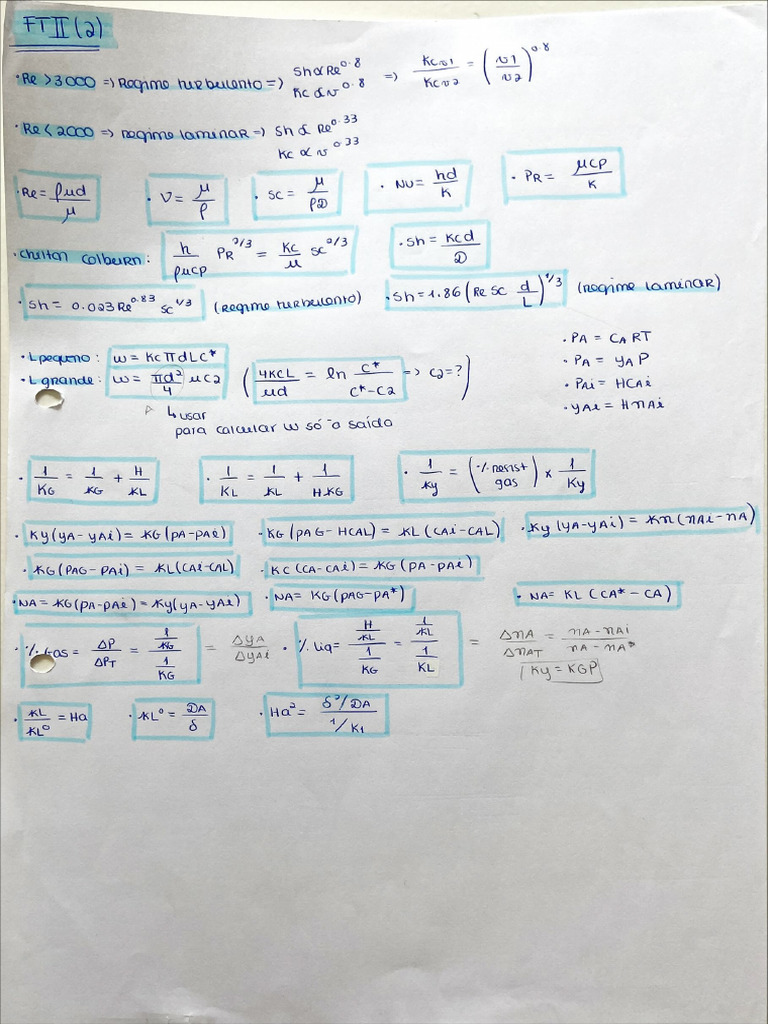 FTII(2)
• Re > 3000 => Regime turbulento => Sh ∝ Re^0.8 => Kcv1/Kcv2 = (v1/v2)^0.8
Kc ∝ v^0.8
• Re < 2000 => regime laminar => Sh ∝ Re^0.33
Kc ∝ v^0.33
• Re = ρud/μ • ν = μ/ρ • Sc = μ/ρD • Nu = hd/K • PR = μcp/K
• Chilton Colburn: h/ρucp PR^2/3 = Kc/u Sc^2/3 • Sh = Kcd/D
• Sh = 0.023 Re^0.83 Sc^1/3 (regime turbulento) • Sh = 1.86 (Re Sc d/L)^1/3 (regime laminar)
• L pequeno: w = KcπdLc* • PA = CART
• L grande: w = πd²/4 uc2 (4KcL/ud = ln c*/c*-c2 => c2=?) • PA = yAP
↳ usar • PAi = HCAi
para calcular w só à saída • yAi = HnAi
• 1/KG = 1/kG + H/kL • 1/KL = 1/kL + 1/HkG • 1/ky = (% resist gas) × 1/Ky
• ky(yA-yAi) = kG(pA-pAi) • kG(pAG-HCAL) = kL(CAi-CAL) • ky(yA-yAi) = kn(nAi-nA)
• kG(PAG-PAi) = kL(CAi-CAL) • kc(CA-CAi) = kG(pA-pAi)
• NA = kG(pA-pAi) = ky(yA-yAi) • NA = KG(pAG-pA*) • NA = KL(CA*-CA)
• % Gas = ΔP/ΔPT = (1/kG)/(1/KG) = ΔyA/ΔyAi • % liq = (H/kL)/(1/KG) = (1/kL)/(1/KL) = ΔnA/ΔnAT = nA-nAi/nA-nA*
Ky = KGP
• kL/kL° = Ha • kL° = DA/δ • Ha² = (δ²/DA)/(1/K1)